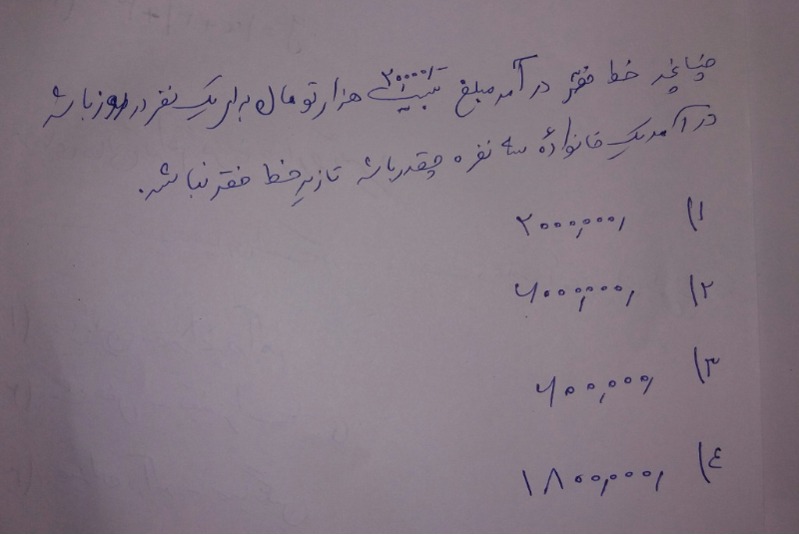 چنانچه خط فقر در آمد مبلغ ۲۰۰۰۰/- بیست هزار تومان برای یک نفر در روز باشد
در آمد یک خانوادهٔ سه نفره چقدر باشد تا زیر خط فقر نباشد.
۱) ۲۰۰۰,۰۰۰,
۲) ۶۰۰,۰۰۰,
۳) ۶۰۰,۰۰۰,
۴) ۱۸۰۰,۰۰۰,